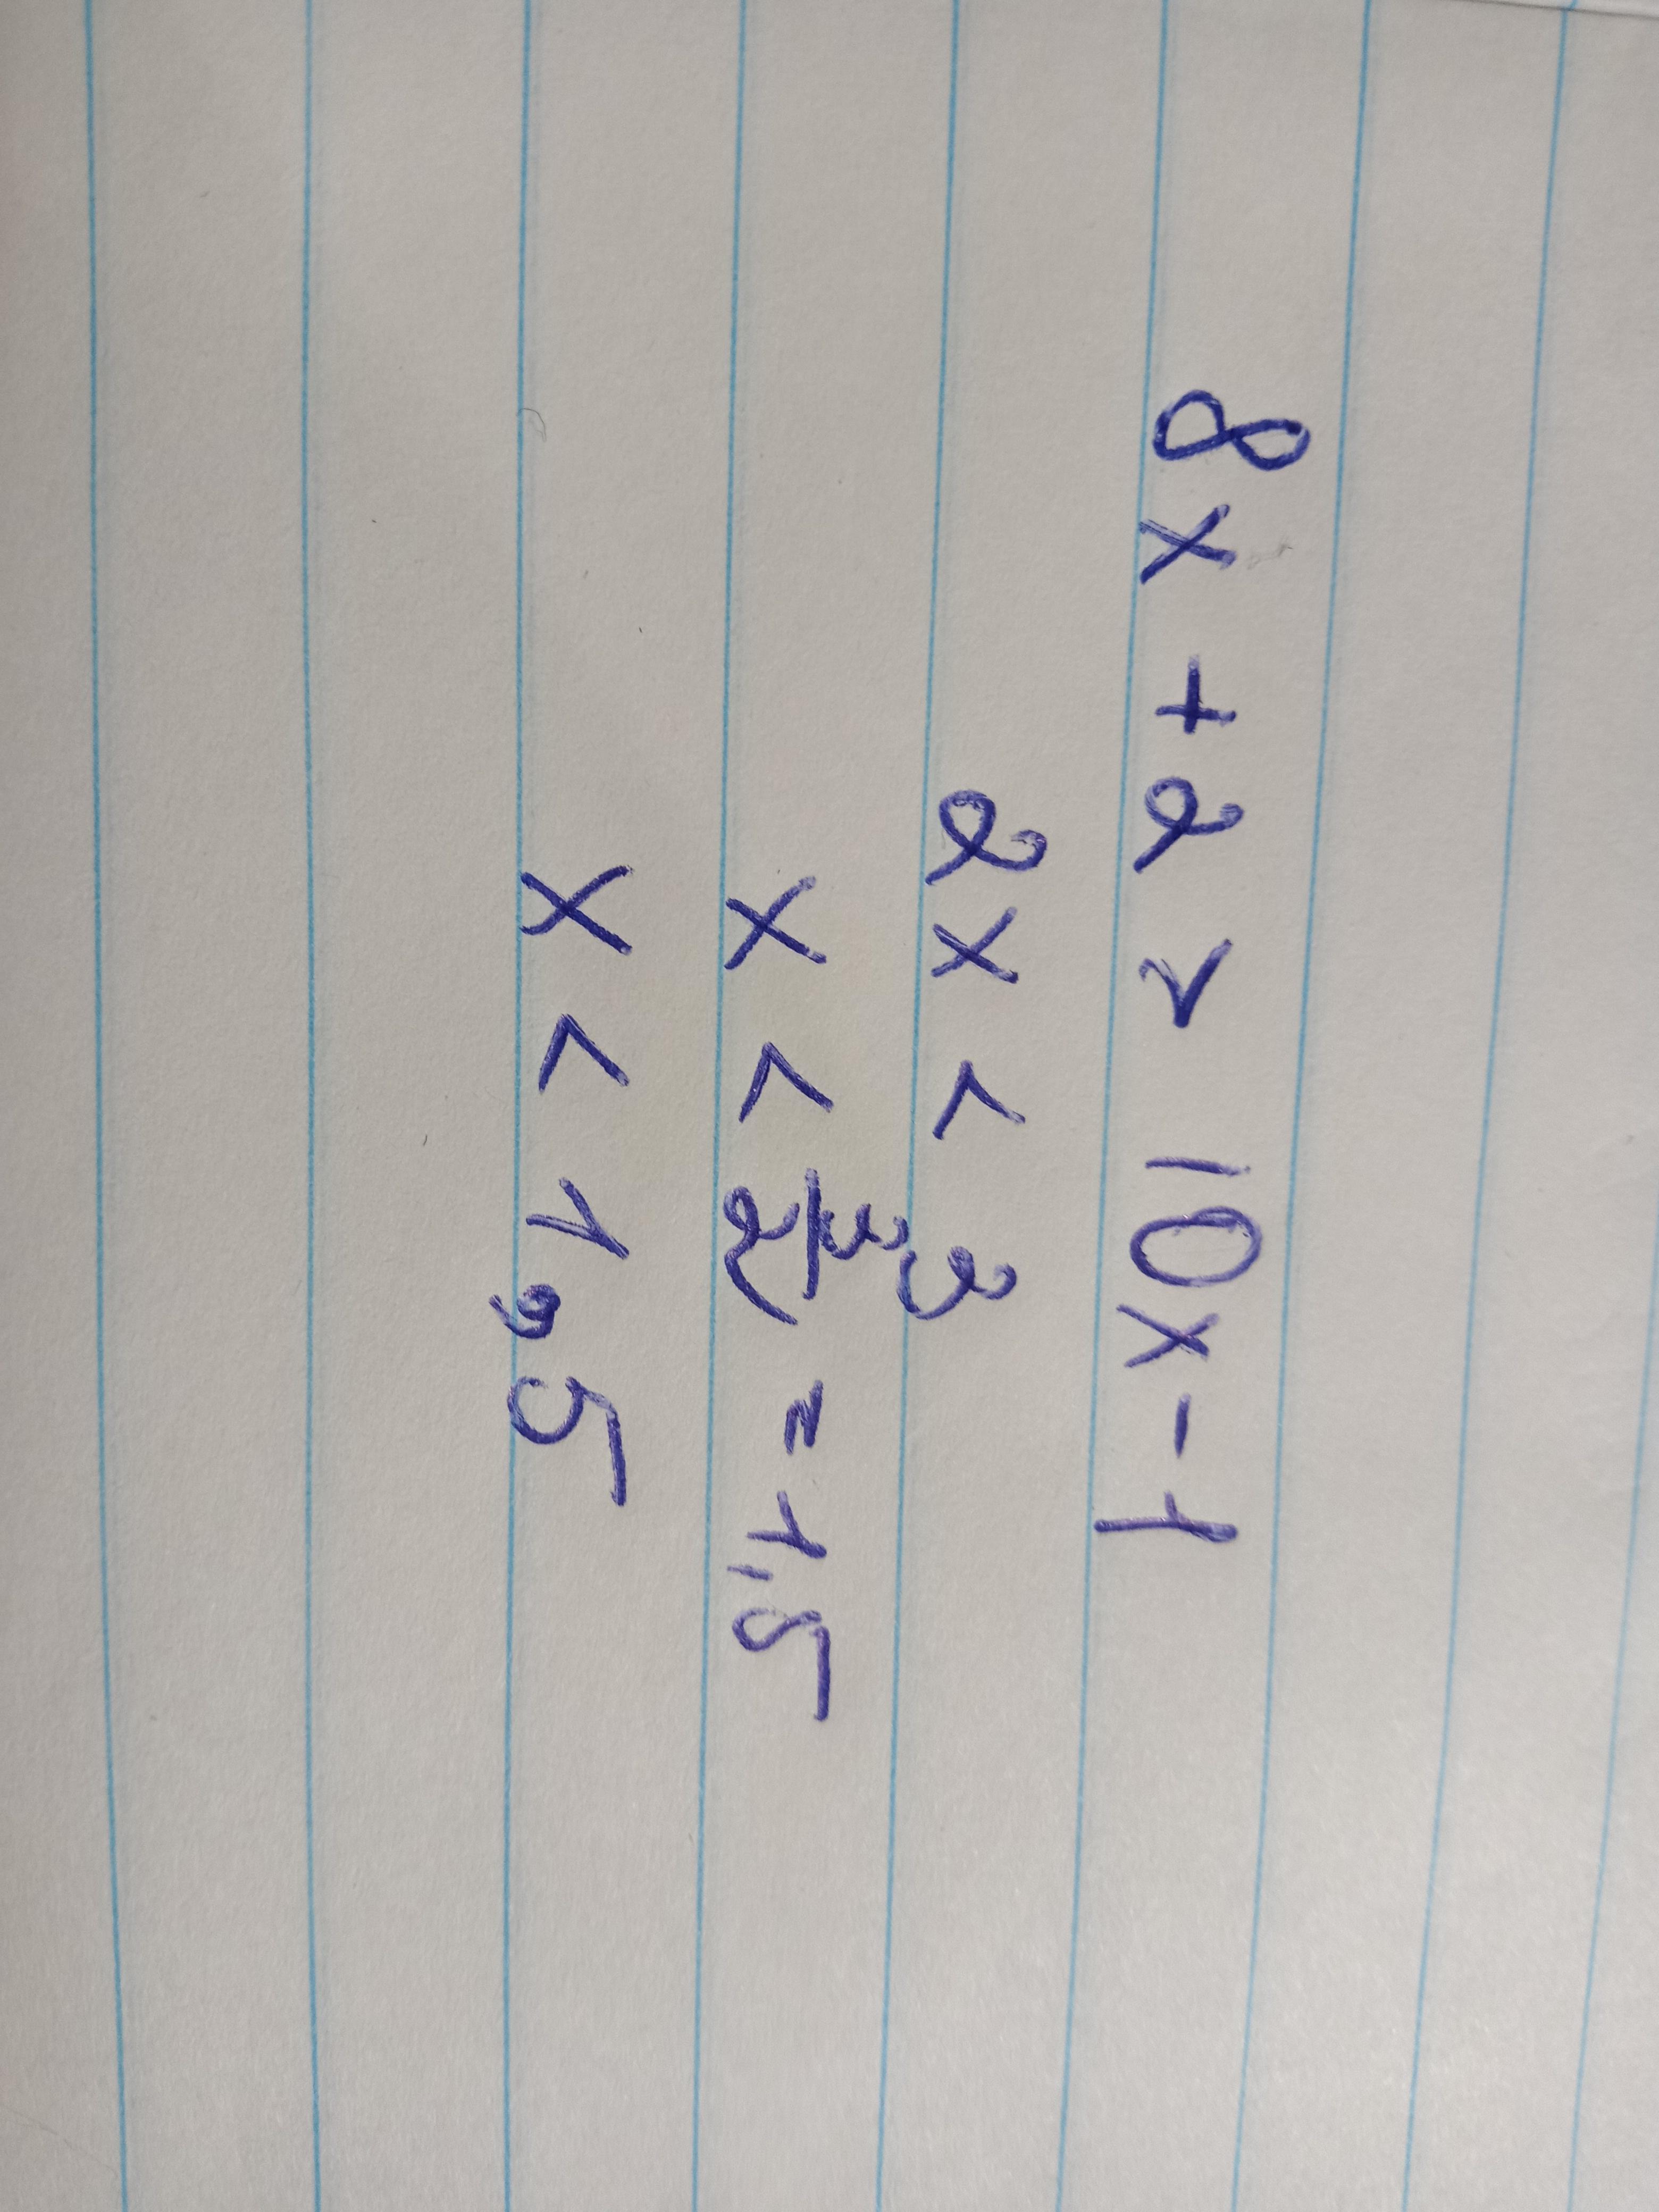 8x + 2 > 10x - 1
2x < 3
x < 3/2 = 1,5
x < 1,5